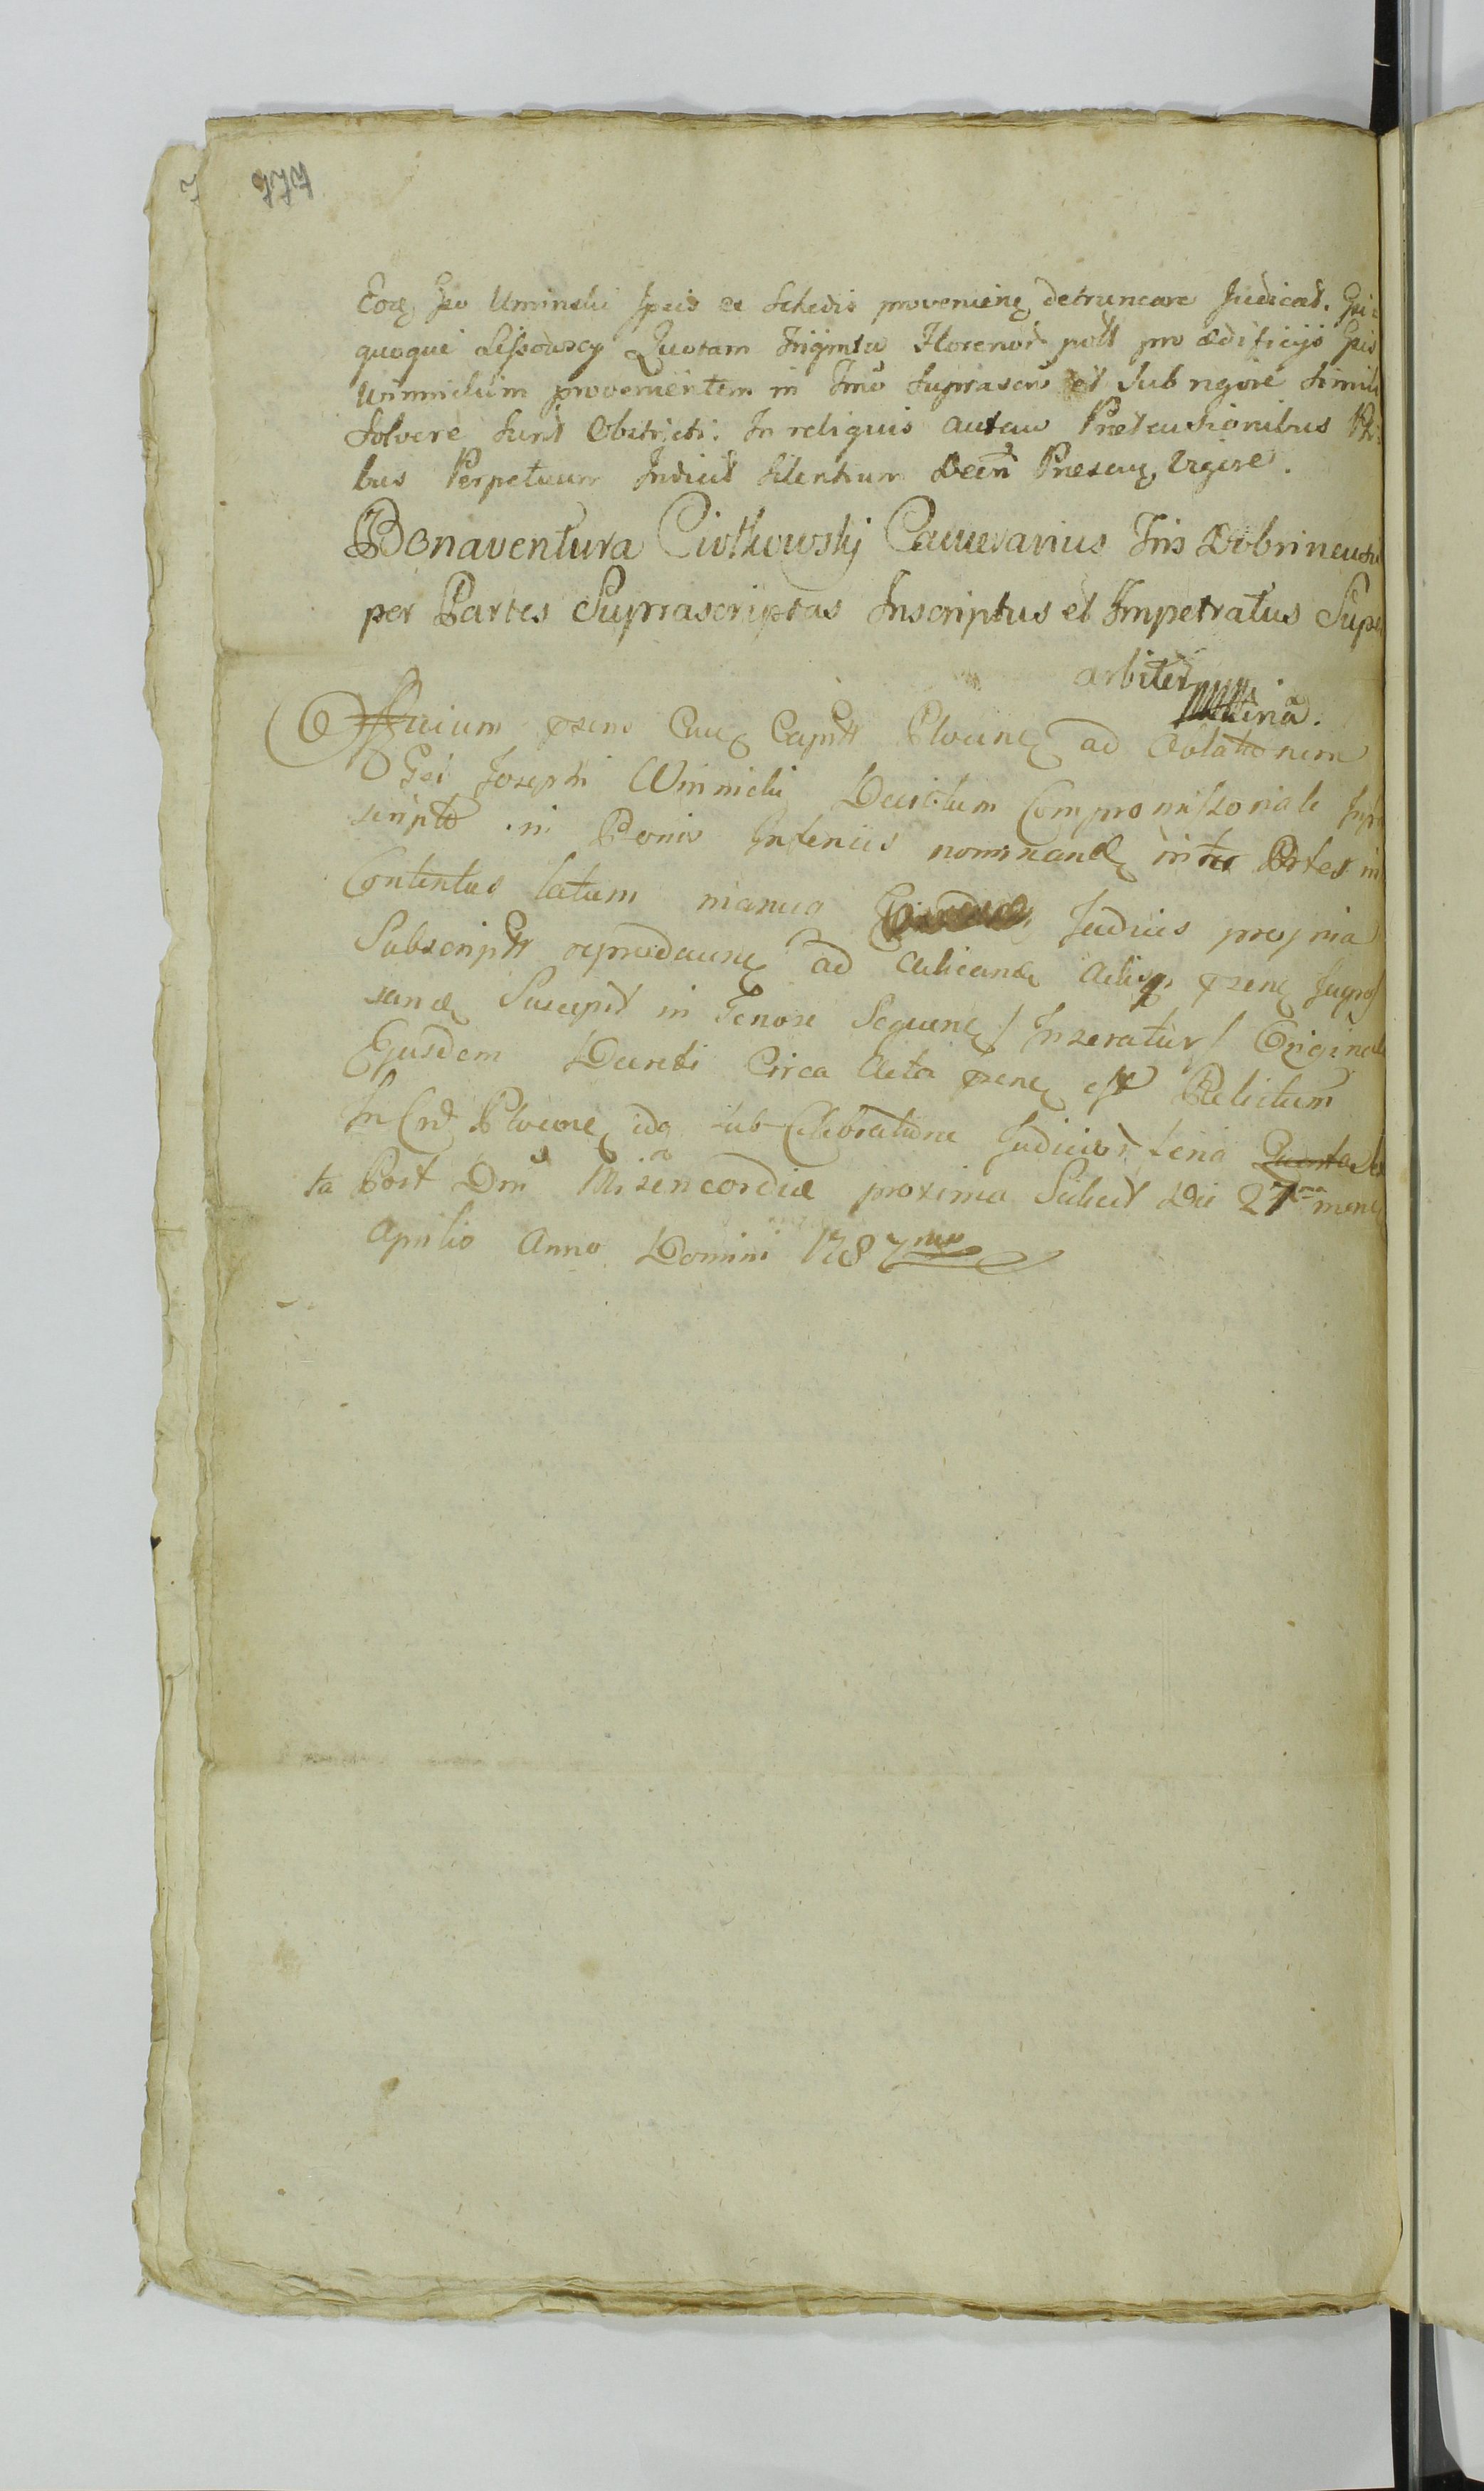 774
Eoq Gso Uminski Ipsis ex Schedis provenieng detruncare Judicat. Gsi
quoque Lissowscy Quotam Triginta Florenor poll pro ædificijs Gsis
Winnickim provenientem in Tmo suprascrō et sub rigore simili
solvere sunt Obstricti. In reliquis autem Prætensionibus Pti
bus Perpetuum Indicit Silentium Decti Præseng Vigore.
Bonaventura Ciołkowskj Camerarius Tris Dobrinensis
per Partes Suprascriptas Inscriptus et Impetratus Super
arbiter
Officium præns Cme Captt Plocine ad Oblationem
Gsi Josephi Winnicki Decretum Compromissoriale
scripto in Bonis Inferius nominand inter Ptes in
Contentus latum manuq Judicis propria
Subscriptt reproducing ad acticand Actisq præne
sand Suscepit in Tenore Seqveng / Inseratur / Originale
Ejusdem Decreti Circa Acta præne est Relictum
In Crd Plocine ido sub Celebratione Judicior feria Quinta
ta Post Dm Misericordiæ proxima Scilicet Die 27ma mens
Aprilis Anno Domini 1787mo